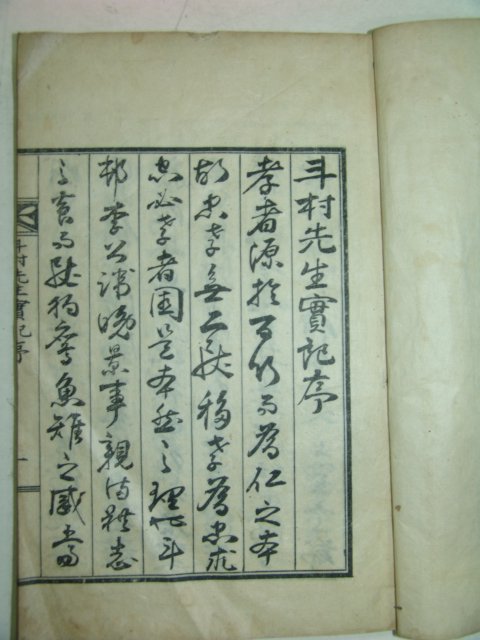 斗村先生實記序
孝者源於百行而爲仁之本
故忠孝無二致移孝爲忠求
忠必孝者固是本然之理也斗
邨李公諱晩景事親志
之養而致魚雉之感
斗村先生實記序
一